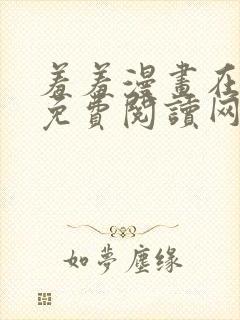 羞羞漫畫在
免費閱讀网
如夢塵缘